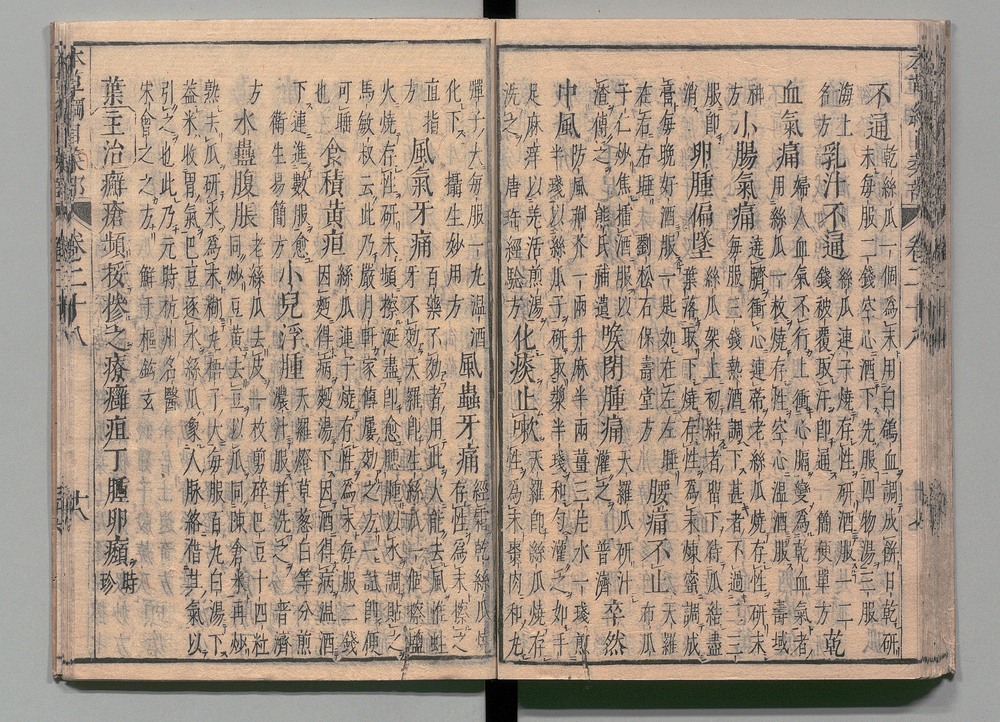 不通乾絲瓜一個為末用白鴿血調成餅日乾研
末每服二錢空心酒下先服四物湯三服
海上名方 乳汁不通絲瓜連子燒存性研酒服一二
錢被覆取汗即通 簡便單方 乾
血氣痛婦人血氣不行上衝心膈變為乾血氣者
用絲瓜一枚燒存性空心溫酒服 壽域
神方 小腸氣痛遶臍衝心連蒂老絲瓜燒存性研末
每服三錢熱酒調下甚者不過二三
服即消 卵腫偏墜絲瓜架上初結者留下待瓜結盡
葉落取下燒存性為末煉蜜調成
膏每晚好酒服一匙如在左左睡
在右右睡 劉松石保壽堂方 腰痛不止天羅布瓜
子仁炒焦擂酒服以
渣傅之 熊氏補遺 喉閉腫痛天羅瓜研汁
灌之 普濟 卒然
中風防風荊芥一兩升麻半兩薑三片水一琖煎
半琖以絲瓜子研取漿半琖和勻灌之如手
足麻痒以羌活煎湯
洗之 唐瑤經驗方 化痰止嗽天羅即絲瓜燒存
性為末棗肉和丸
彈子大每服一丸溫酒
化下 攝生妙用方 風蟲牙痛經霜乾絲瓜燒
存性為末擦之
直指 風氣牙痛百藥不効者用此大能去風惟蛀
牙不効天羅即生絲瓜一個擦鹽
火燒存性研末頻擦涎盡即愈腮腫以水調貼之
馬敏叔云此乃嚴月軒家傳屢効之方一試即便
可睡 食積黃疸絲瓜連子燒存性為末每服二錢
因麪得病麪湯下因酒得病溫酒
下連進數服愈
衞生易簡方 小兒浮腫天羅燈草葱白等分煎
濃汁服并洗之 普濟
方 水蠱腹脹老絲瓜去皮一枚剪碎巴豆十四粒
同炒豆黃去豆以瓜同陳倉米再炒
熟去瓜研米為末糊丸梧子大每服百丸白湯下
葢米收胃氣巴豆逐水絲瓜象人脉絡借其氣以
引之也此乃元時杭州名醫
宋會之之方 鮮于樞鈎玄
葉主治癬瘡頻挼摻之療癰疽丁腫卵㿗時珍